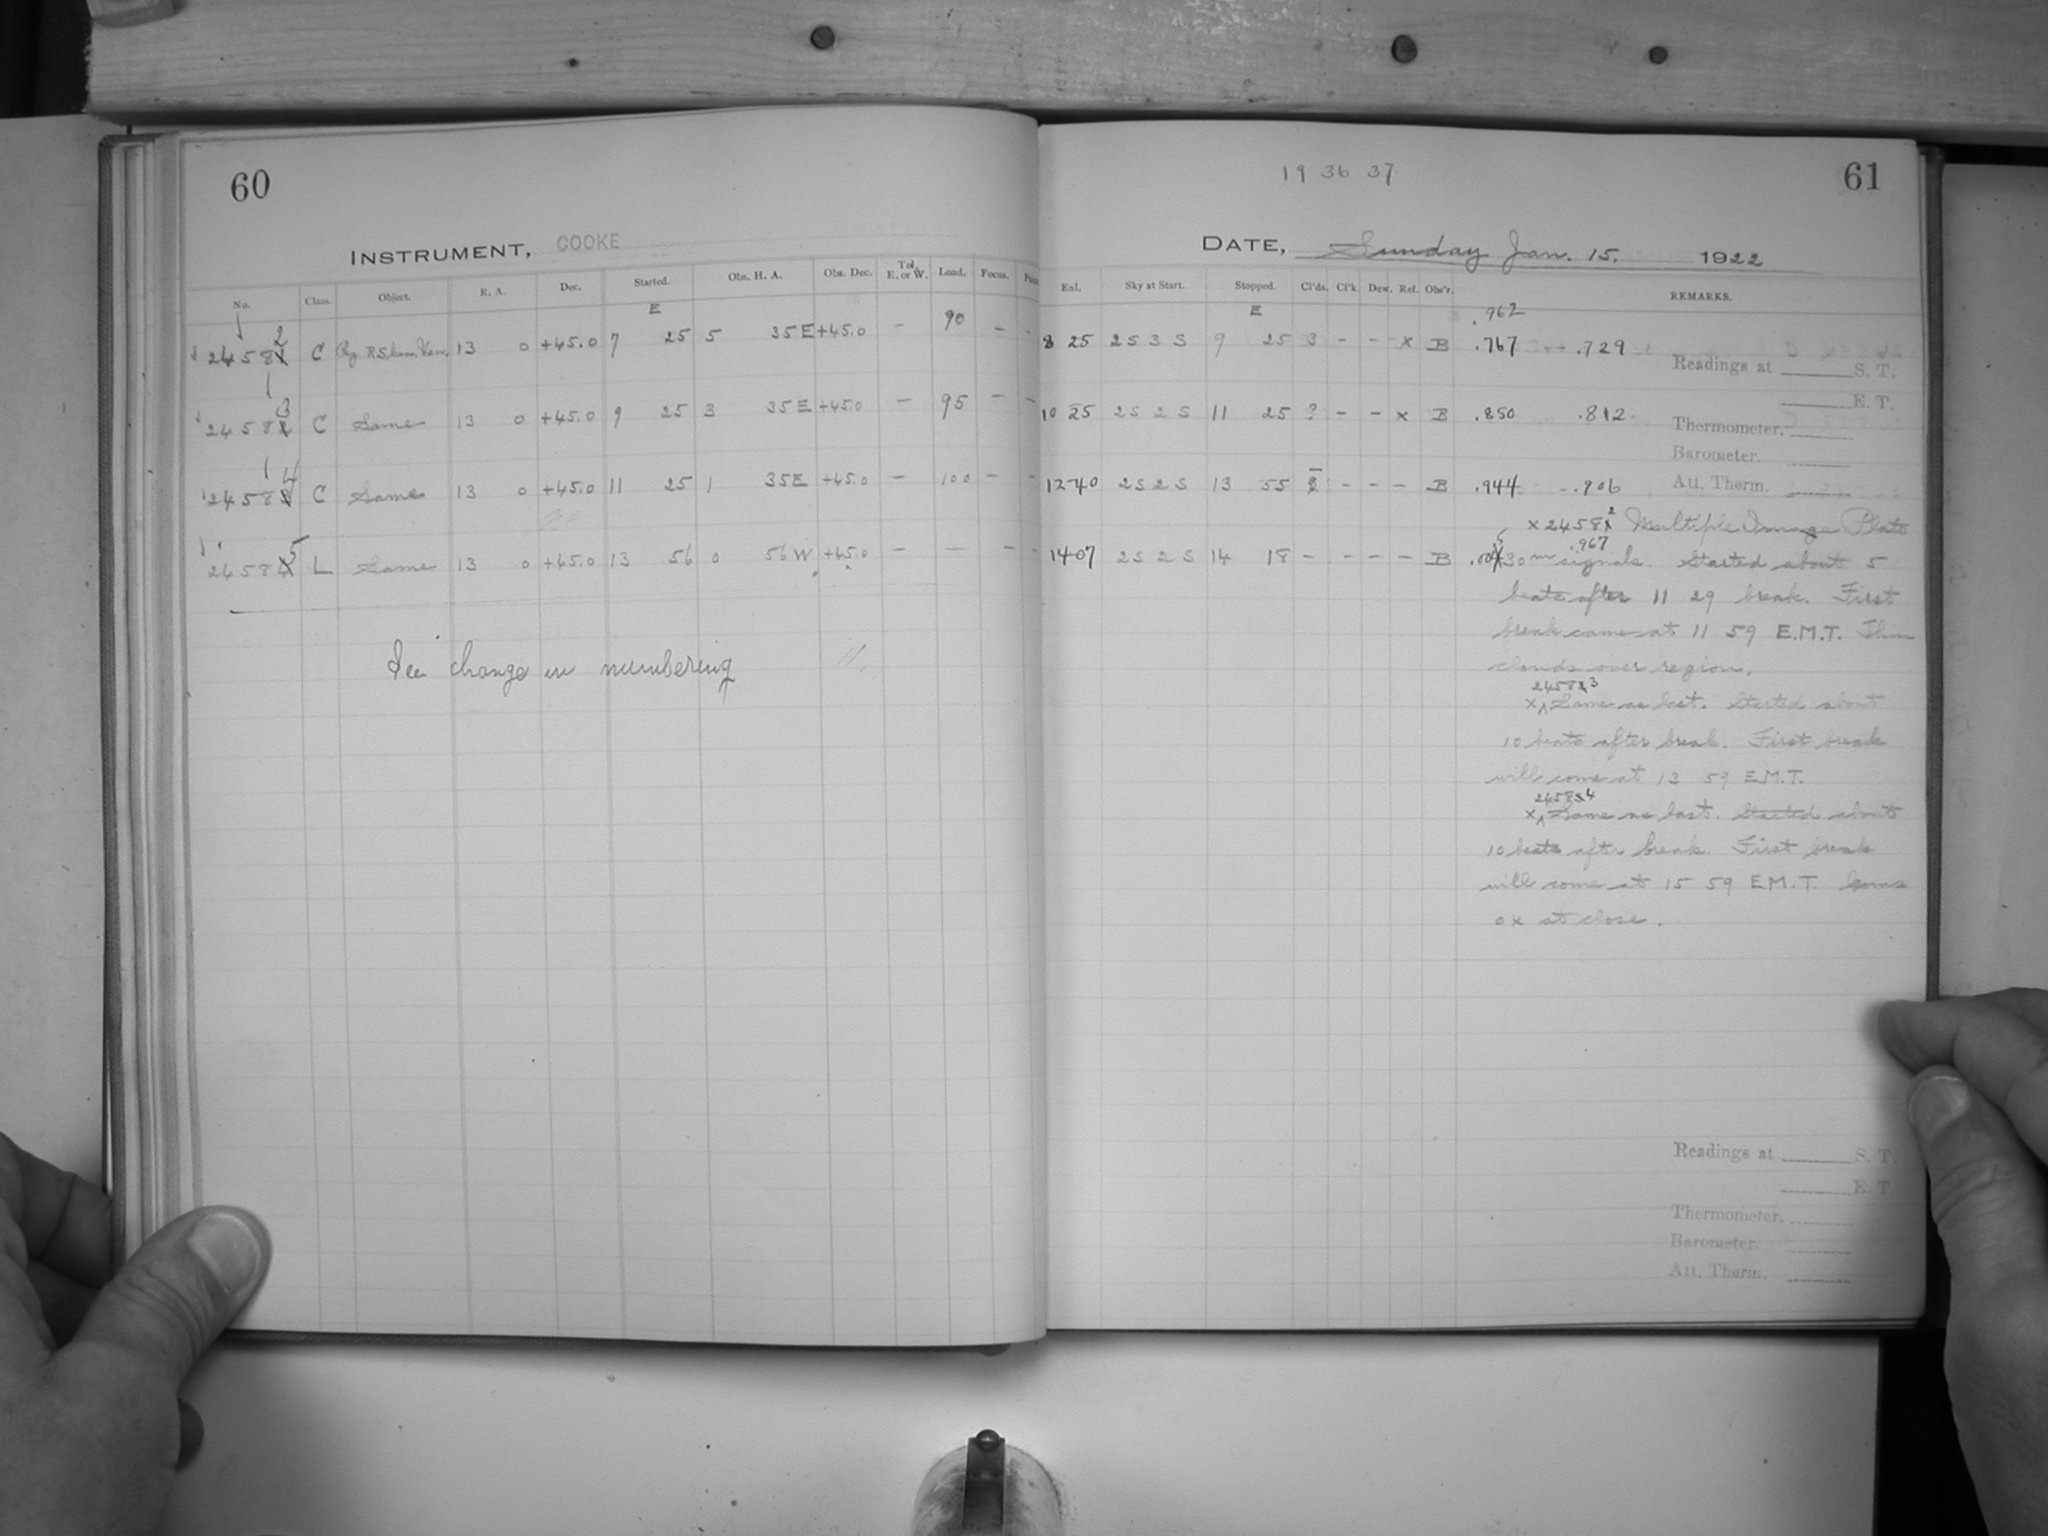 60
INSTRUMENT, COOKE
No. Class. Object. R. A. Dec. Started. Obs. H. A. Obs. Dec. Tel. E. or W. Load. Focus.
E
24582 C 13 0 +45.0 7 25 5 35 E +45.0 – 90 –
24583 C Same 13 0 +45.0 9 25 3 35 E +45.0 – 95 – –
24584 C Same 13 0 +45.0 11 25 1 35 E +45.0 – 100 – –
24585 L Same 13 0 +45.0 13 56 0 56 W +45.0 – – – –
See change in numbering
19 36 37
61
DATE, Sunday Jan. 15. 1922
Enl. Sky at Start. Stopped. Cl'ds. Cl'k. Dew. Ref. Obs'r. REMARKS.
E
.962
8 25 2S 3 S 9 25 3 – – x B .767 .729
Readings at S. T.
E. T.
10 25 2S 2 S 11 25 ? – – x B .850 .812
Thermometer.
Barometer.
12 40 2S 2 S 13 55 – – – B .944 .906
Att. Therm.
x 24582 Multiple Image Plate
.967
14 07 2S 2 S 14 18 – – – – B 30 m signals. Started about 5
beats after 11 29 break. First
break came at 11 59 E.M.T. Thin
clouds over region.
24583
x ^ Same as last. Started about
10 beats after break. First break
will come at 13 59 E.M.T.
24584
x ^ Same as last. Started about
10 beats after break. First break
will come at 15 59 E.M.T.
at close.
Readings at S. T.
E. T.
Thermometer.
Barometer.
Att. Therm.